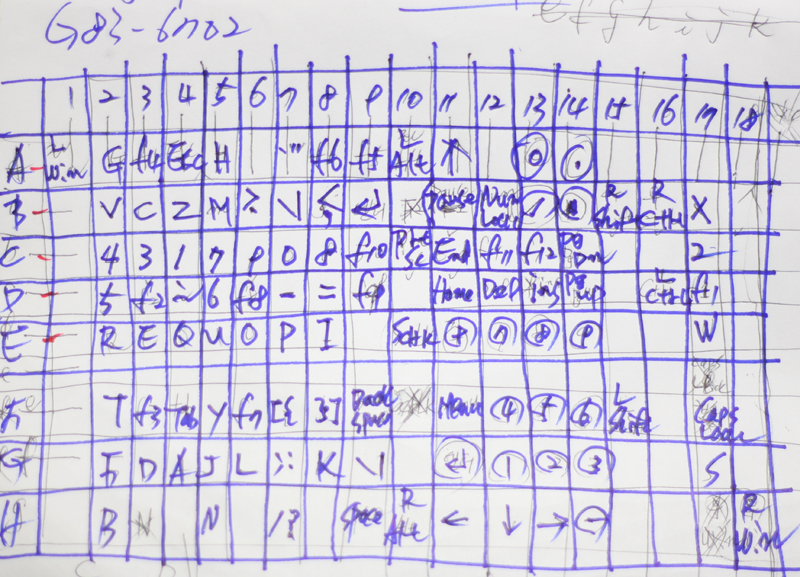 G83-6
e f g h i j k
1 2 3 4 5 6 7 8 9 10 11 12 13 14 15 16 17 18
A L Win G f4 Esc H '" f6 f5 L Alt ↑ ⓪
B V C Z M > \ < ↵ Pause Num Lock R Shift R Ctrl X
C 4 3 1 7 9 0 8 f10 Prt Sc End f11 f12 Pg Dn 2
D 5 f2 6 f8 - = f9 Home Del ins Pg up L Ctrl f1
E R E Q U O P I ScrLK ⑦ ⑧ ⑨ W
F T f3 Tab Y f7 [{ }] Back Space Menu ④ ⑤ ⑥ L Shift Caps Lock
G F D A J L ;: K \| ① ② ③ S
H B N /? Space R Alt ← ↓ → R Win